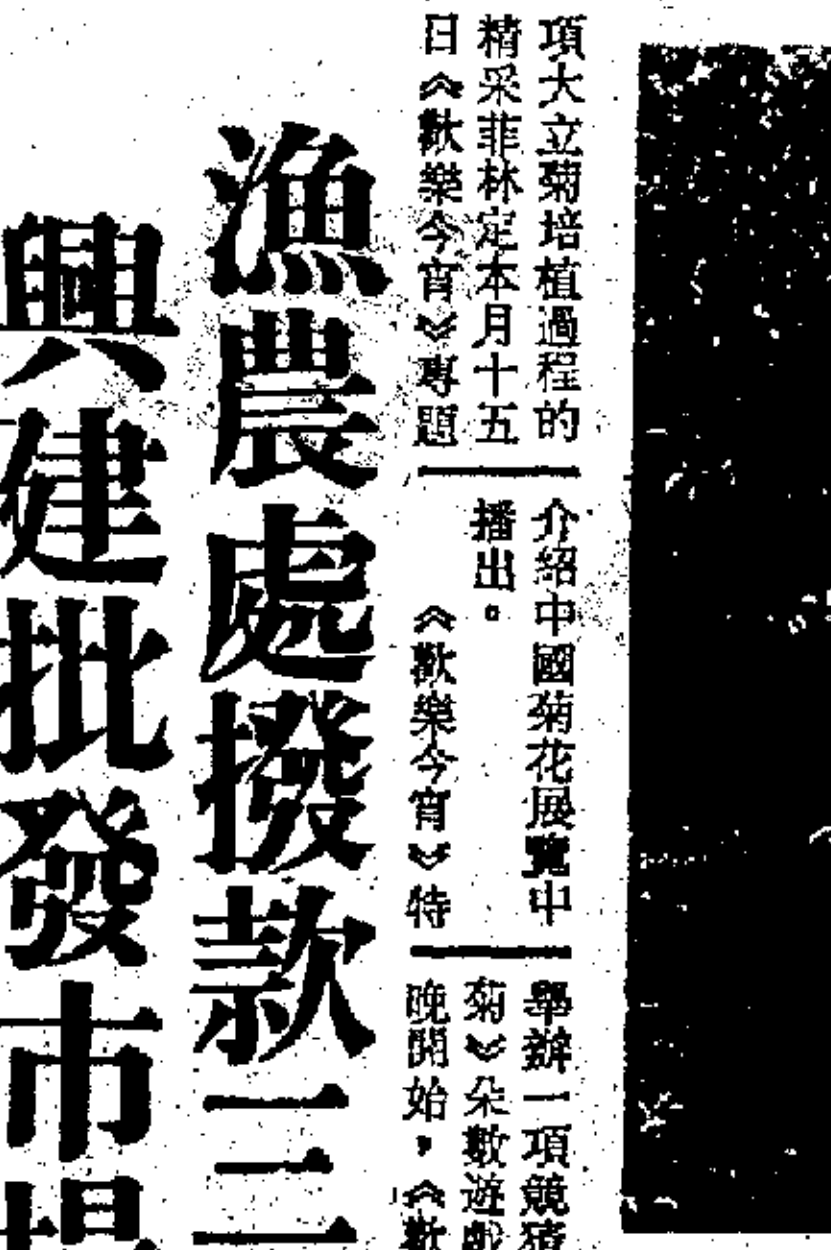 項大立菊培植過程的
精采菲林定本月十五
日《歡樂今宵》專題
介紹中國菊花展覽中
播出。
《歡樂今宵》特
舉辦一項競猜
菊》朵數遊戲
晚開始，《歡
漁農處撥款三
興建批發市場